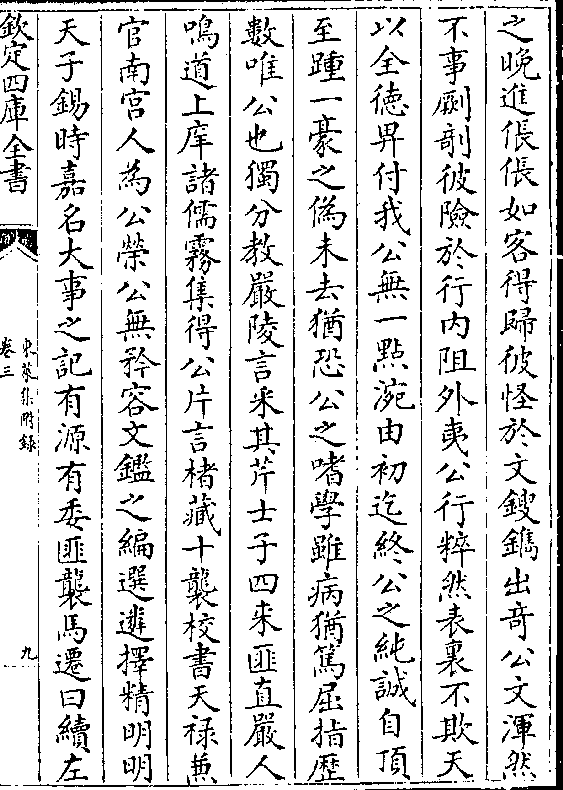 之晚進倀倀如客得歸彼怪於文鎪鐫出竒公文渾然
不事劂剞彼險於行内阻外夷公行粹然表裏不欺天
以全徳畀付我公無一㸃涴由初迄終公之純誠自頂
至踵一豪之僞未去猶恐公之嗜學雖病猶篤屈指歴
數唯公也獨分教嚴陵言采其芹士子四来匪直嚴人
鳴道上庠諸儒霧集得公片言楮藏十襲校書天禄兼
官南宫人為公榮公無矜容文鑑之編選遴擇精明明
天子錫時嘉名大事之記有源有委匪襲馬遷曰續左
欽定四庫全書
東萊集附録
卷三
九